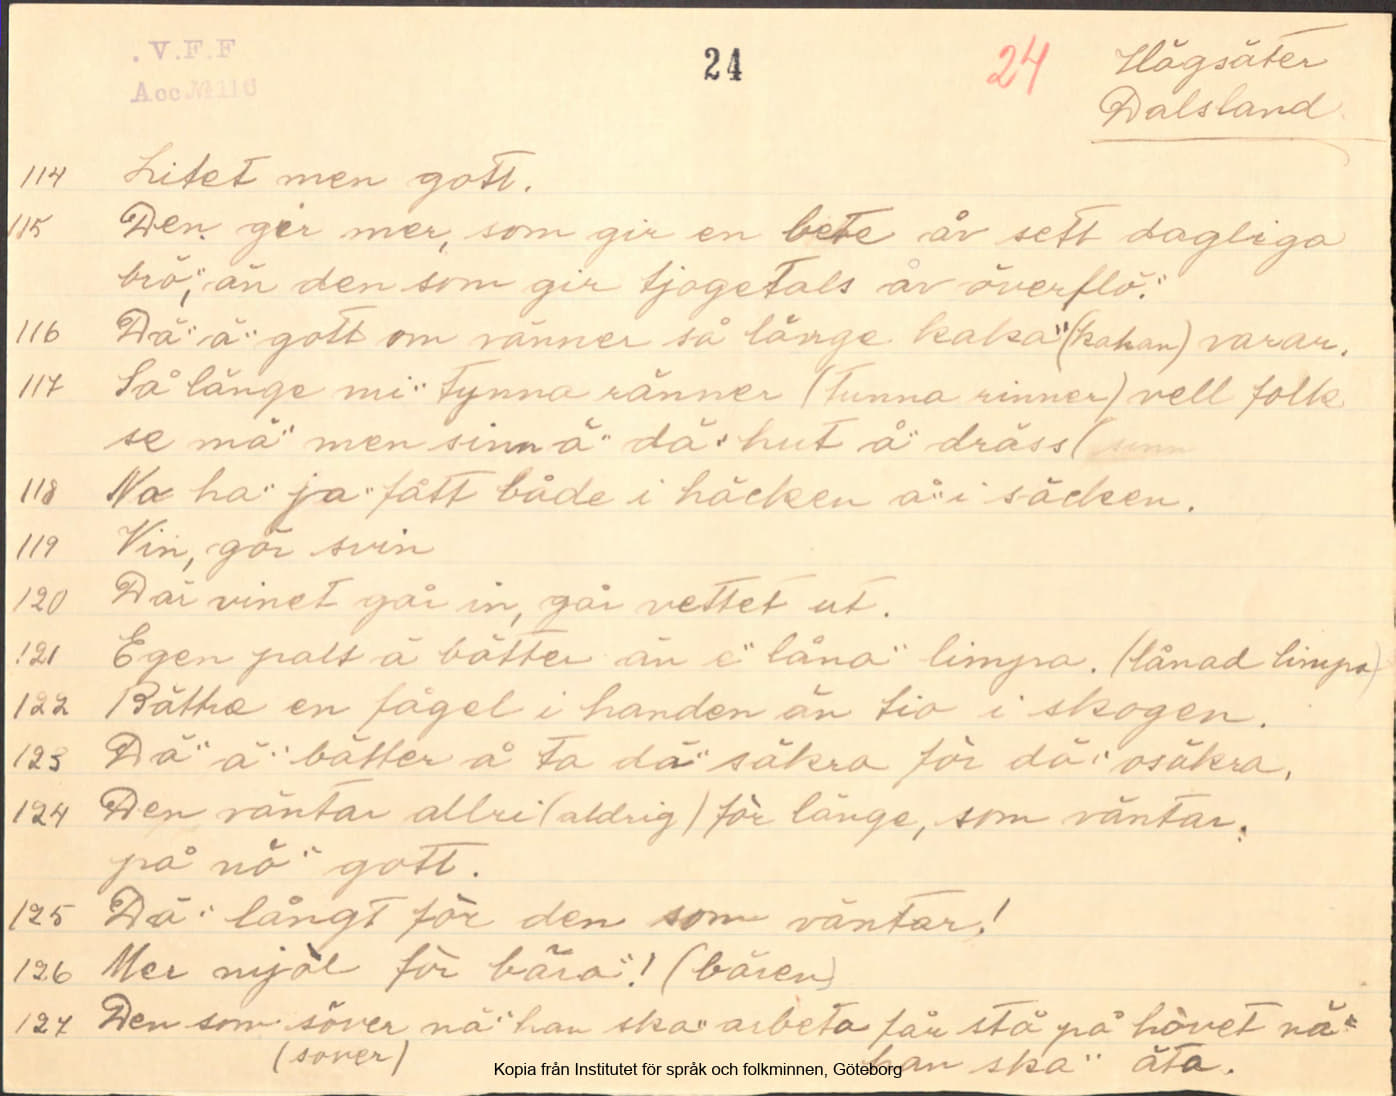 . V.F.F
Acc
24
24
Högsäter
Dalsland
114 Litet men gott.
115 Den ger mer, som gir en bete åv sett dagliga
brö", än den som gir tjogetals åv överflö."
116 Dä" ä" gott om vänner så länge kaka" (kakan) varar.
117 Så länge mi" tynna ränner (tunna rinner) vell folk
se mä" men sinn ä" dä" hut å" dräss (
118 Na ha" ja" fått både i häcken å" i säcken.
119 Vin, gör svin
120 Där vinet går in, går vettet ut.
121 Egen palt ä bätter än e" låna" limpa. (lånad limpa)
122 Bättre en fågel i handen än tio i skogen.
123 Dä" ä" bätter å ta dä" säkra för dä" osäkra.
124 Den väntar allri (aldrig) för länge, som väntar
på nö" gott.
125 Dä" långt för den som väntar!
126 Mer mjöl för bära"! (bären)
127 Den som söver nä" han ska" arbeta får stå på hövet nä"
(sover) han ska" äta.
Kopia från Institutet för språk och folkminnen, Göteborg